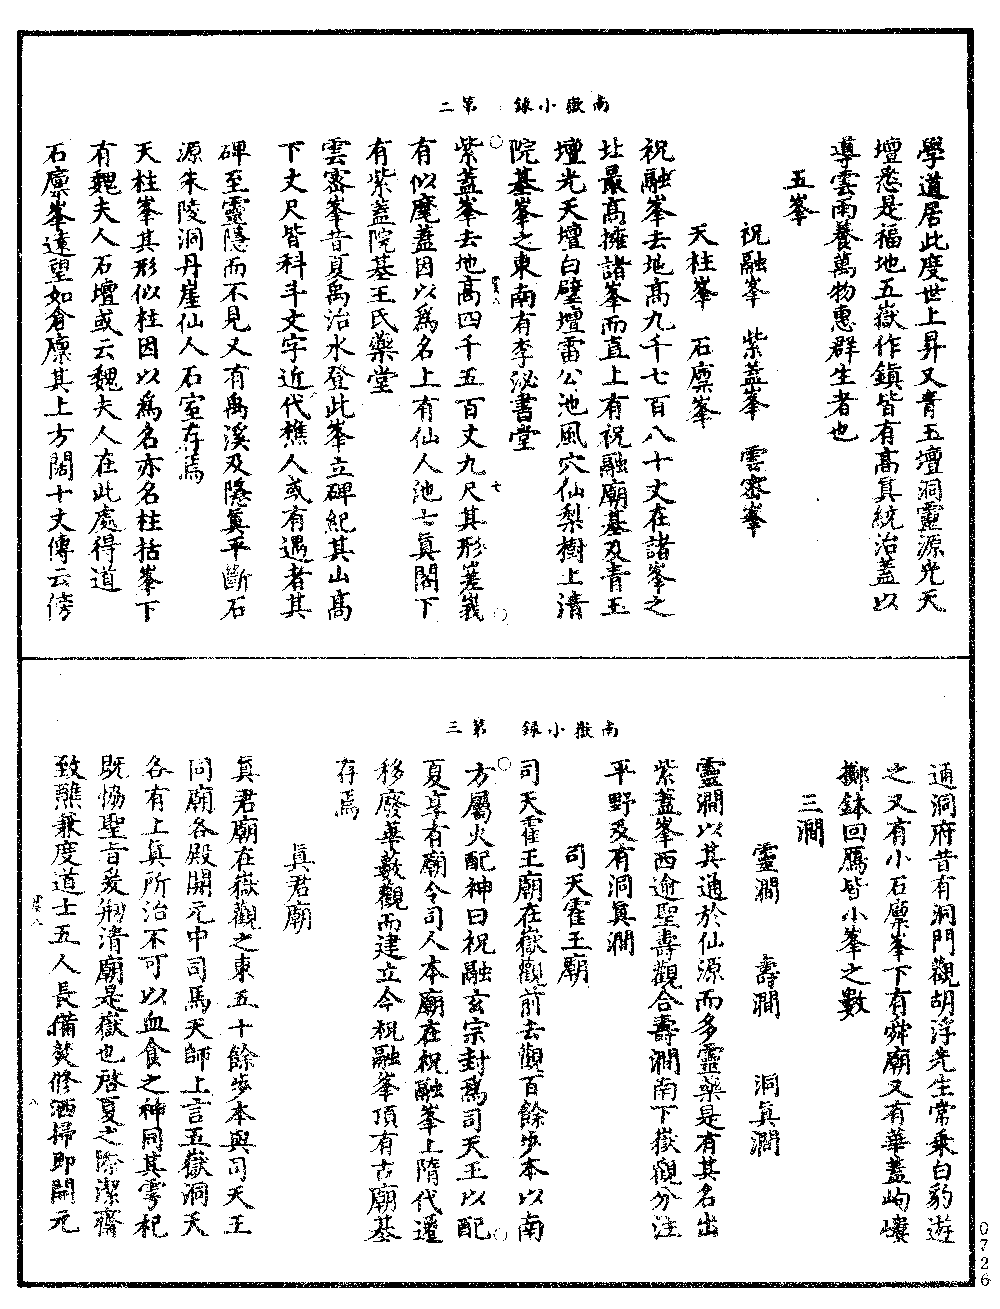 南嶽小錄　第二
學道居此度世上昇又青玉壇洞靈源光天
壇悉是福地五嶽作鎮皆有高真統治蓋以
導雲雨養萬物惠群生者也
五峯
祝融峯　紫蓋峯　雲密峯
天柱峯　石廩峯
祝融峯去地高九千七百八十丈在諸峯之
址最高擁諸峯而直上有祝融廟基及青玉
壇光天壇白壁壇雷公池風穴仙梨樹上清
院基峯之東南有李泌書堂
紫蓋峯去地高四千五百丈九尺其形嵳峩
有似麾蓋因以爲名上有仙人池七真閣下
有紫蓋院基王氏藥堂
雲密峯昔夏禹治水登此峯立碑紀其山高
下丈尺皆科斗文字近代樵人或有遇者其
碑至靈隱而不見又有禹溪及隱真平斷石
源朱陵洞丹崖仙人石室存焉
天柱峯其形似柱因以爲名亦名柱括峯下
有魏夫人石壇或云魏夫人在此處得道
石廩峯遠望如倉廩其上方闊十丈傳云傍
七
南嶽小錄　第三
通洞府昔有洞門觀胡浮先生常乘白豹遊
之又有小石廩峯下有舜廟又有華蓋岣嶁
擲鉢回鴈皆小峯之數
三澗
靈澗　壽澗　洞真澗
靈澗以其通於仙源而多靈藥是有其名出
紫蓋峯西逾聖壽觀合壽澗南下嶽觀分注
平野及有洞真澗
司天霍王廟
司天霍王廟在嶽觀前去觀百餘步本以南
方屬火配神曰祝融玄宗封爲司天王以配
夏享有廟令司人本廟在祝融峯上隋代遷
移廢華藪觀而建立今祝融峯頂有古廟基
存焉
真君廟
真君廟在嶽觀之東五十餘步本與司天王
同廟各殿開元中司馬天師上言五嶽洞天
各有上真所治不可以血食之神同其饗祀
旣恊聖旨爰剏清廟是嶽也啓夏之際潔齋
致醮兼度道士五人長備焚修洒掃即開元
八
0726